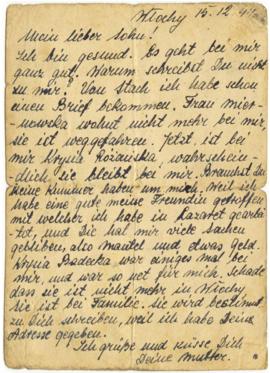 Włochy 15.12.41
Mein lieber Sohn!
Ich bin gesund. Es geht bei mir
ganz gut. Warum schreibst Du nicht
zu mir? Von Stach ich habe schon
einen Brief bekommen. Frau Mier-
nowska wohnt nicht mehr bei mir,
sie ist weggefahren. Jetzt ist bei
mir Krysia wahrschein-
dlich, sie bleibt bei mir. Brauchst Du
keine Kummer haben um mich, weil ich
habe eine gute meine Freundin getroffen
mit welcher ich habe in Lazaret gearbei-
tot, und Die hat mir viele Sachen
gebliben, also Mantel und etwas Geld.
Krysia Badecka war einiges mal bei
mir, und war so net für mich. Schade
dass sie ist nicht mehr in Włochy
Sie ist bei Familie. Sie wird bestimmt
zu Dich schreiben, weil ich habe Deine
Adresse gegeben.
Ich grüße und küsse Dich
Deine Mutter.